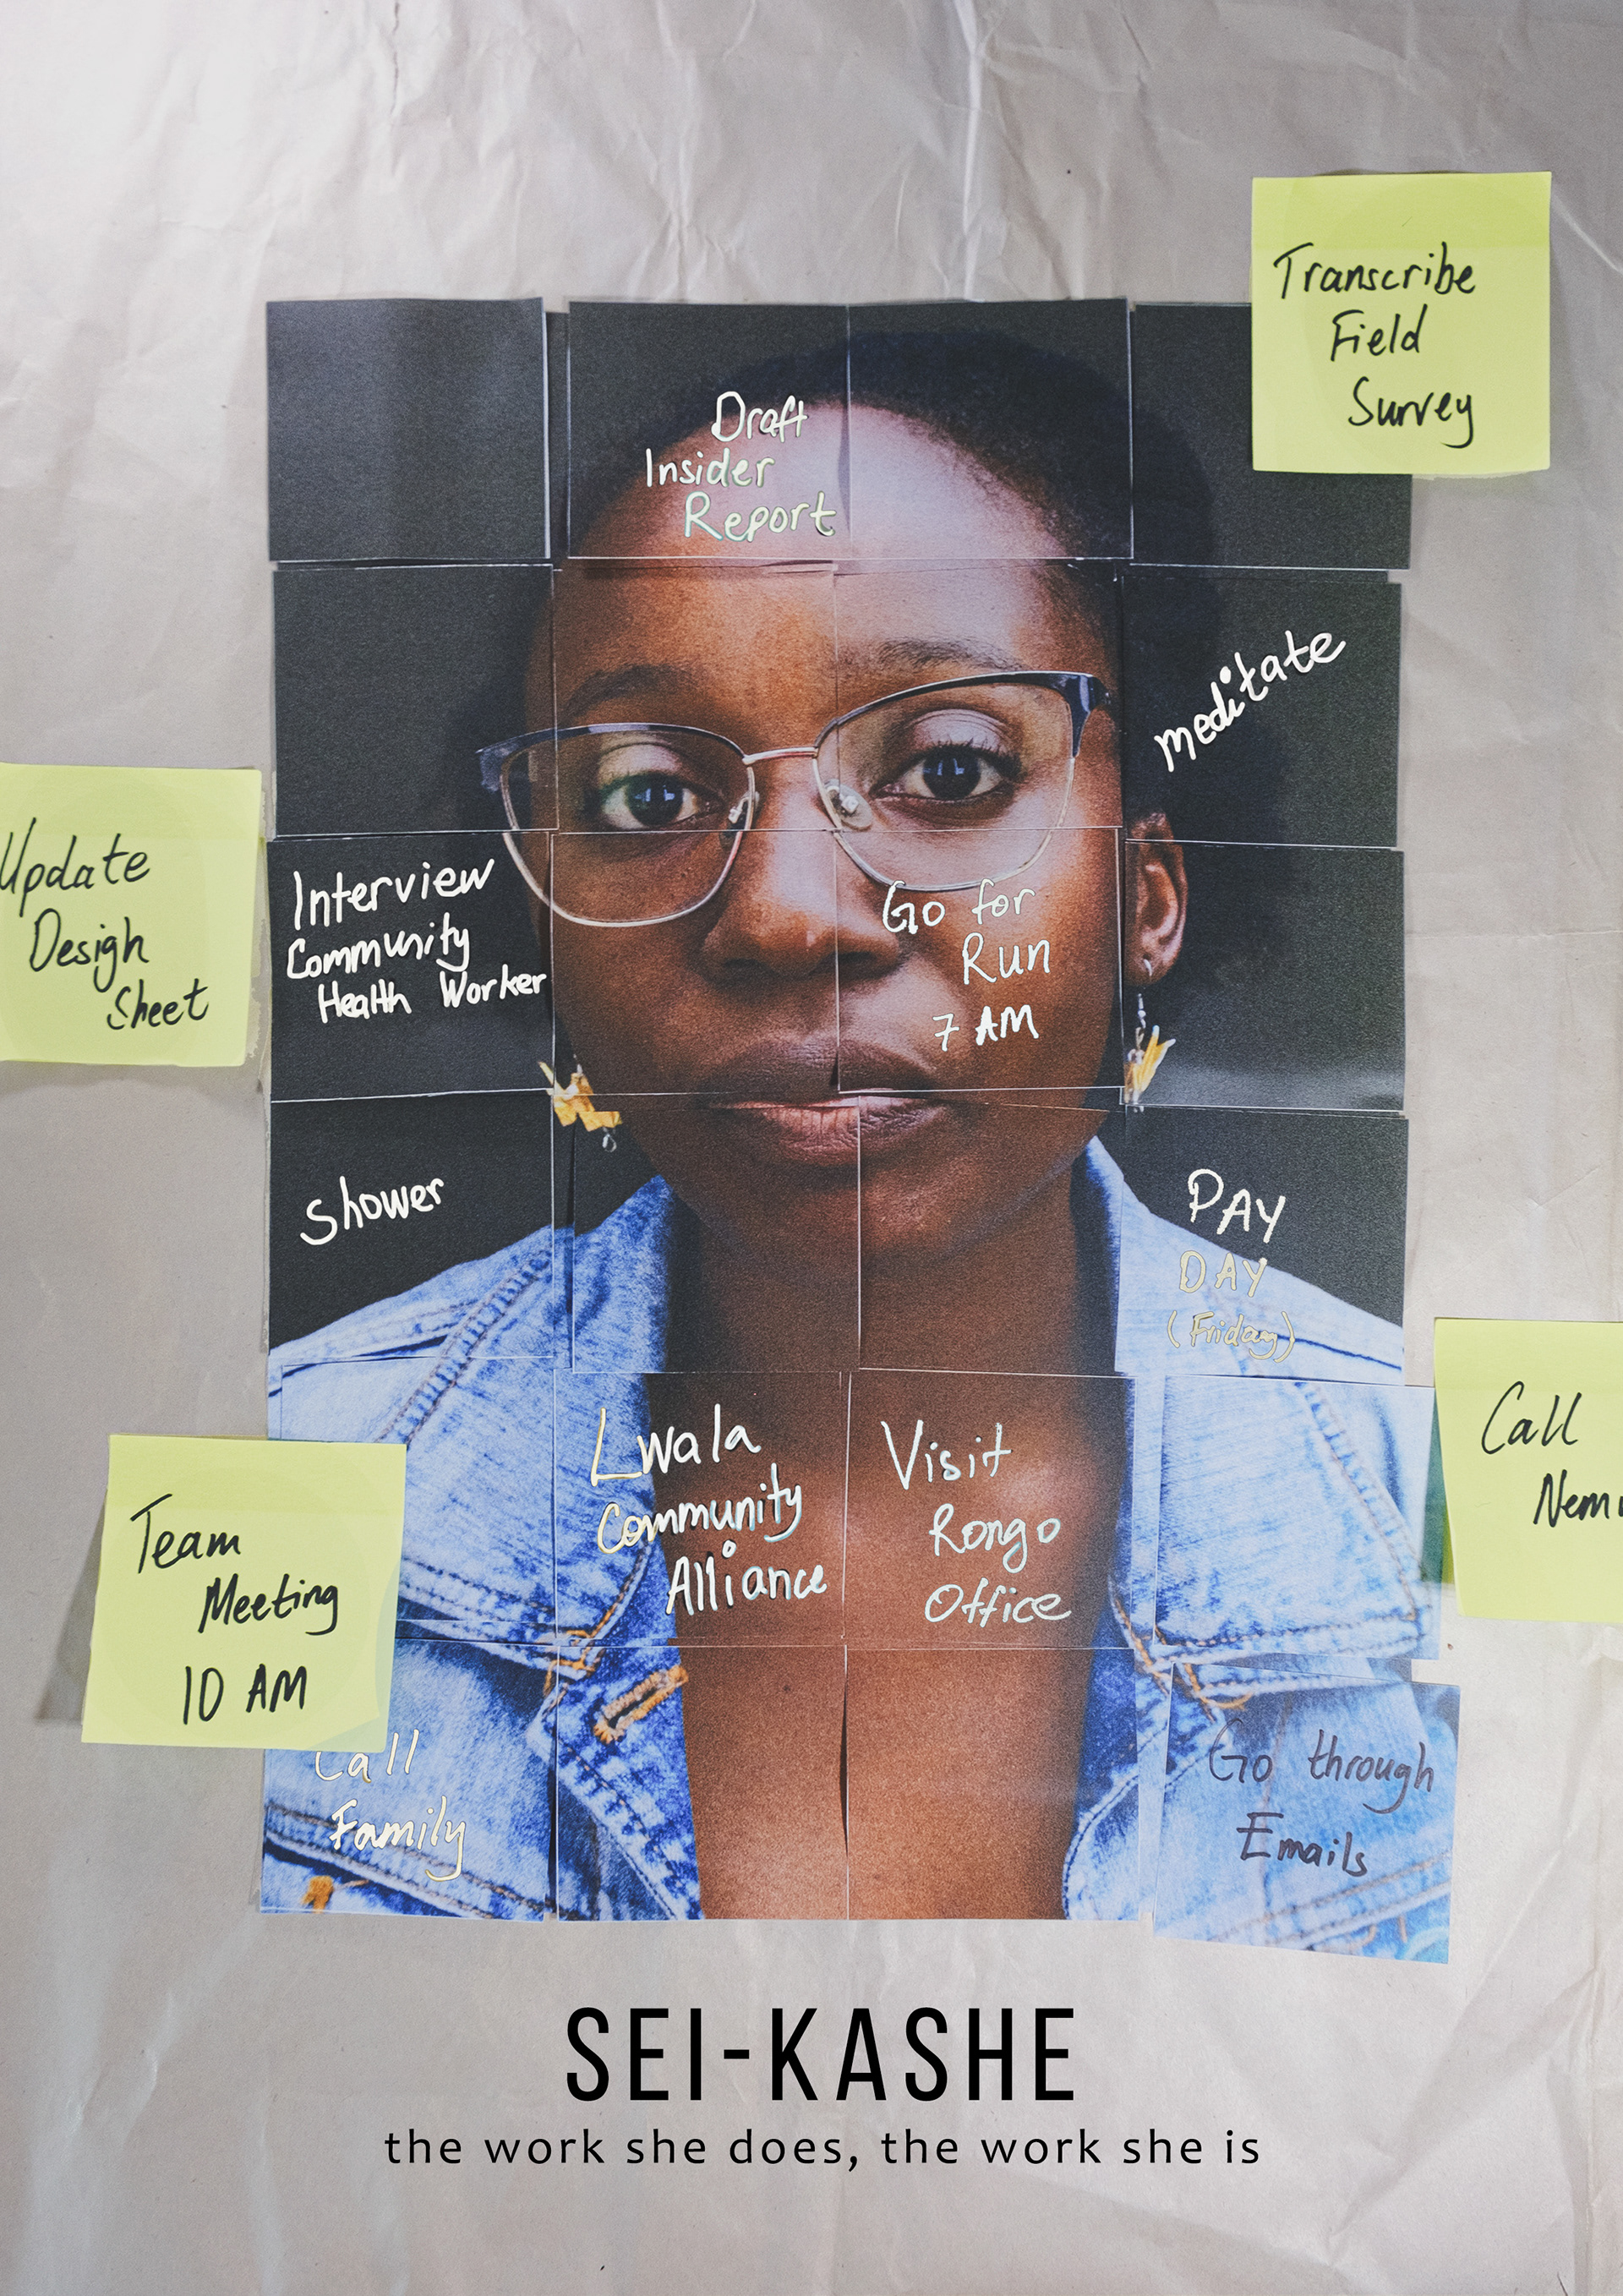 Transcribe
Field
Survey
Draft
Insider
Report
meditate
Update
Design
Sheet
Interview
Community
Health Worker
Go for
Run
7 AM
Shower
PAY
DAY
(Friday)
Lwala
Community
Alliance
Visit
Rongo
Office
Call
Team
Meeting
10 AM
Call
Family
Go through
Emails
SEI-KASHE
the work she does, the work she is